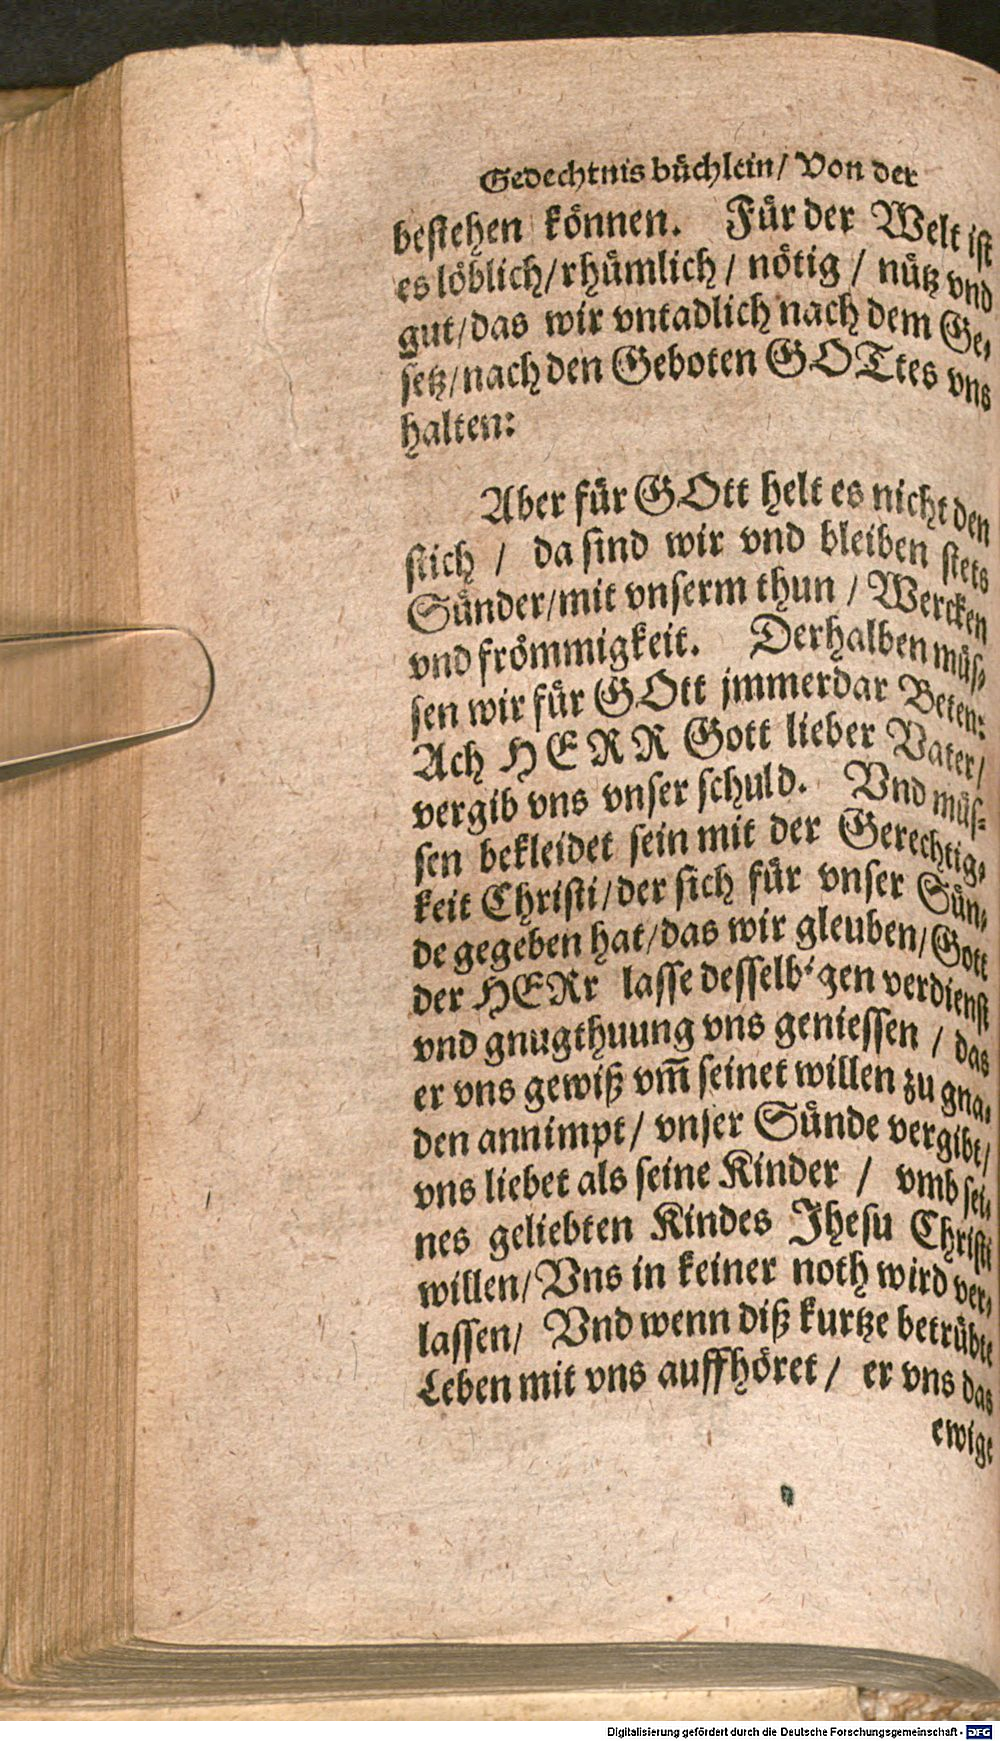 Gedechtnis büchlein/ Von der
bestehen können. Für der Welt ist
es löblich/rhümlich/ nötig / nütz vnd
gut/das wir vntadlich nach dem Ge⸗
setz/nach den Geboten GOTtes vns
halten:
Aber für GOtt helt es nicht den
stich / da sind wir vnd bleiben stets
Sünder/mit vnserm thun / Wercken
vnd frömmigkeit. Derhalben müs⸗
sen wir für GOtt jmmerdar Beten:
Ach HERR Gott lieber Vater/
vergib vns vnser schuld. Vnd müs⸗
sen bekleidet sein mit der Gerechtig⸗
keit Christi/der sich für vnser Sün⸗
de gegeben hat/das wir gleuben/Gott
der HERr lasse desselbigen verdienst
vnd gnugthuung vns geniessen / das
er vns gewiß vm̅ seinet willen zu gna⸗
den annimpt/ vnser Sünde vergibt/
vns liebet als seine Kinder / vmb sei⸗
nes geliebten Kindes Jhesu Christi
willen/Vns in keiner noth wird ver⸗
lassen/ Vnd wenn diß kurtze betrübte
Leben mit vns auffhöret / er vns das
ewige
Digitalisierung gefördert durch die Deutsche Forschungsgemeinschaft - DFG